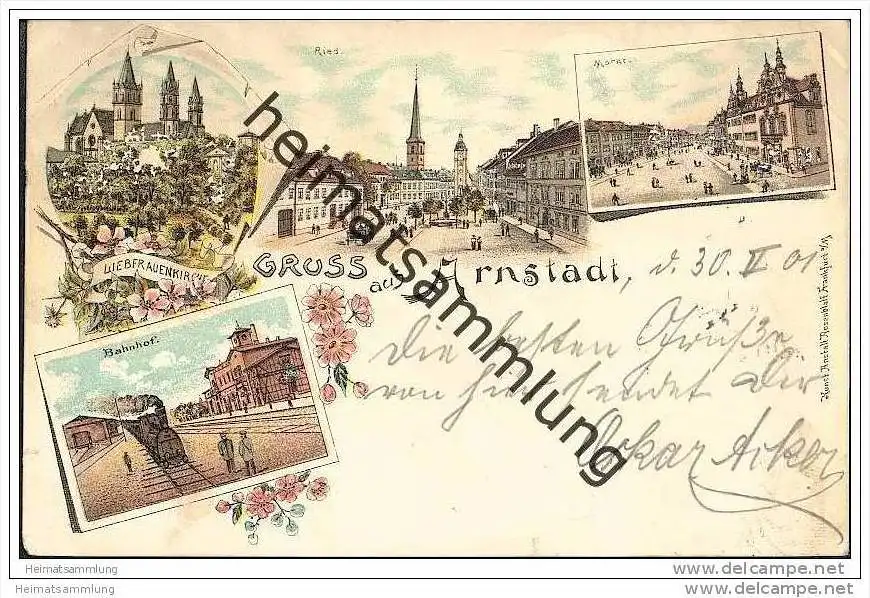 Ried.
Markt.
LIEBFRAUENKIRCHE
GRUSS aus Arnstadt, d. 30. V 01
Die besten Grüße
von hier sendet Dir
Oskar Acker
Bahnhof.
Kunst Anstalt Rosenblatt, Frankfurt a/M
heimatsammlung
Heimatsammlung
Heimatsammlung
www.delcampe.net
www.delcampe.net